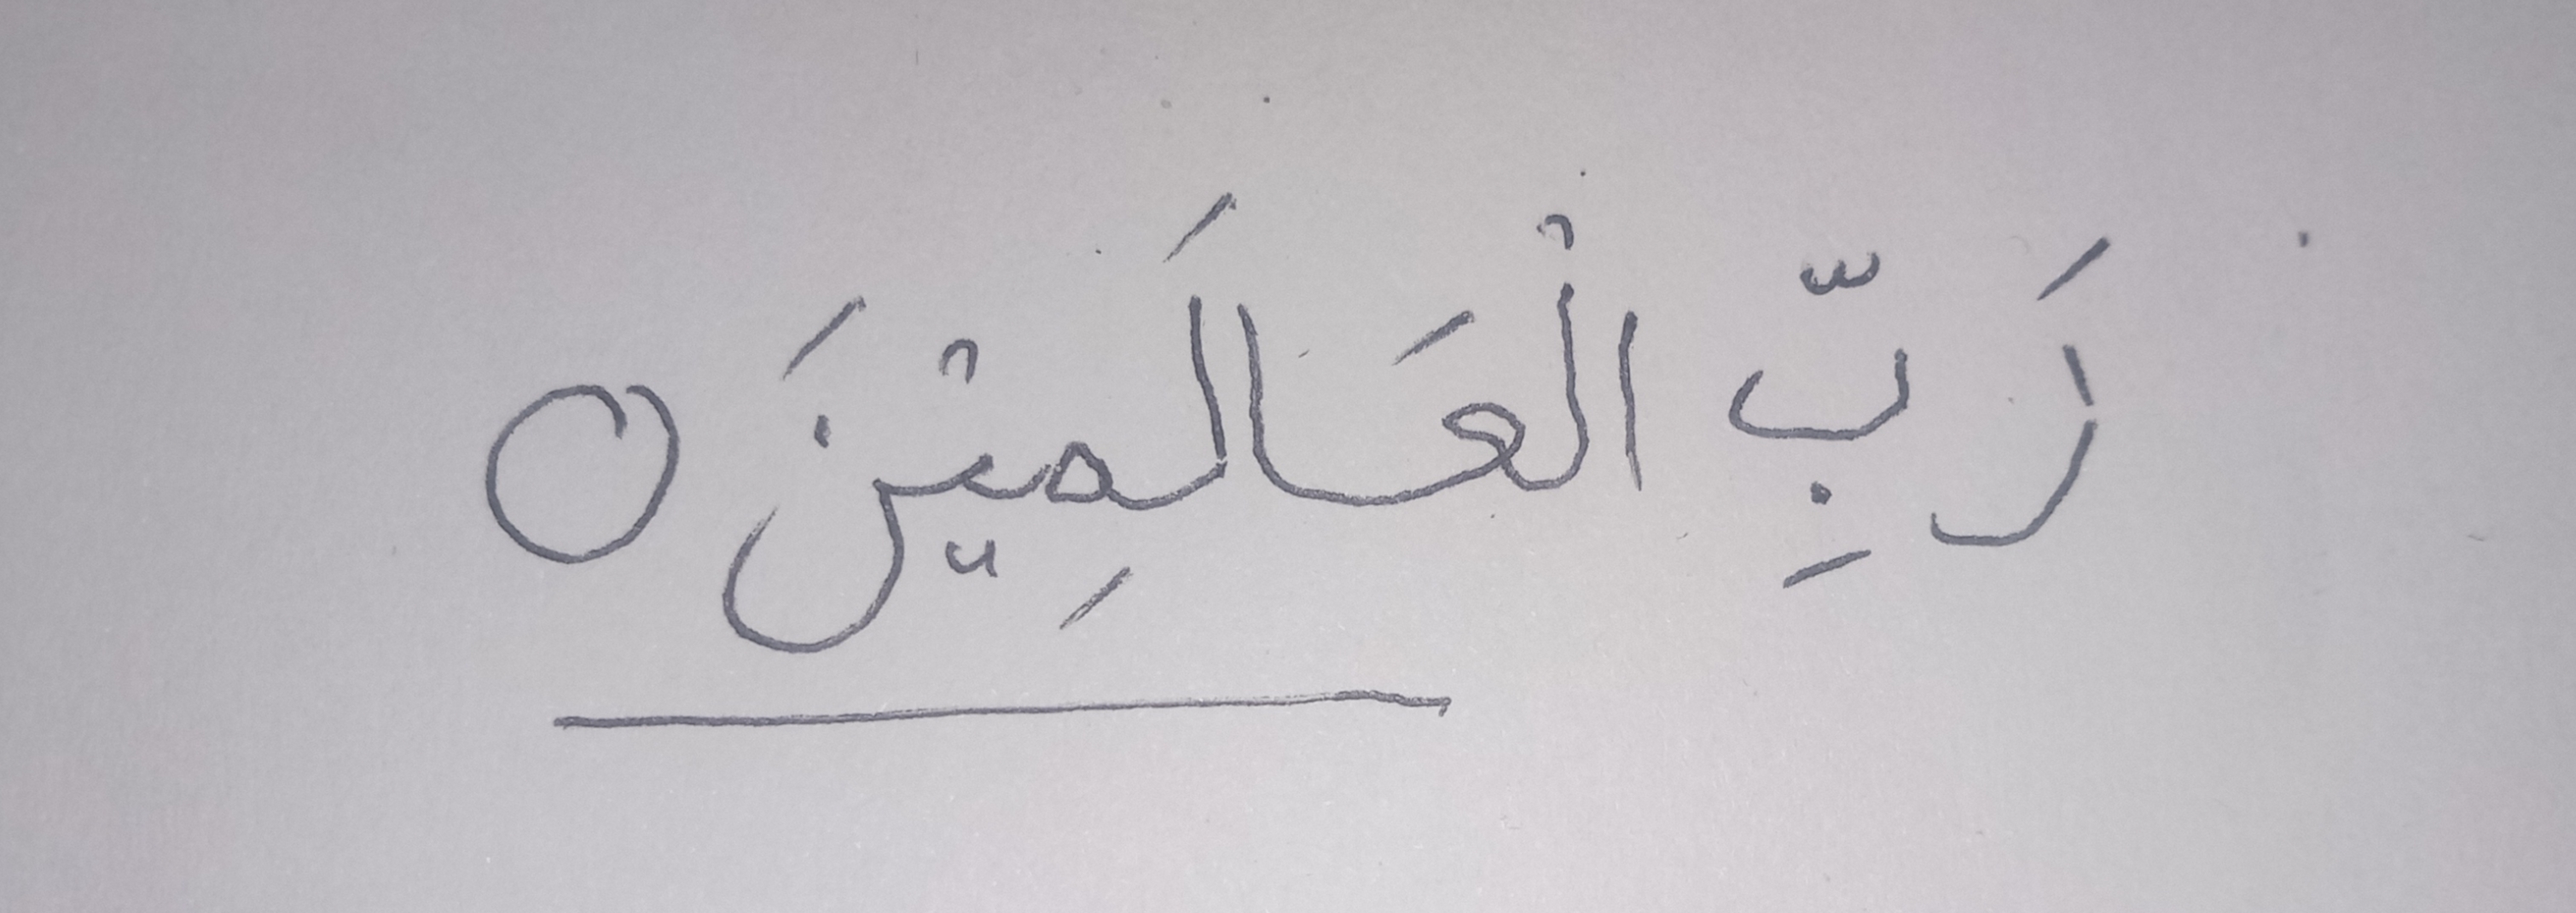 رَبِّ الْعَالَمِيْنَ ○